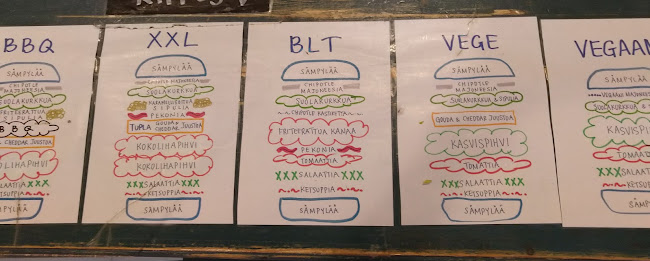 BBQ
SÄMPYLÄÄ
CHIPOTLE
MAJONEESIA
SUOLAKURKKUA
FRITEERATTUA
SIPULIA
BBQ
& CHEDDAR JUUSTOA
KOKOLIHAPIHVI
KOKOLIHAPIHVI
SALAATTIA
KETSUPPIA
SÄMPYLÄÄ
XXL
SÄMPYLÄÄ
CHIPOTLE MAJONEESIA
SUOLAKURKKUA
SIPULIA
PEKONIA
TUPLA GOUDA & CHEDDAR JUUSTOA
KOKOLIHAPIHVI
KOKOLIHAPIHVI
XXX SALAATTIA XXX
KETSUPPIA
SÄMPYLÄÄ
BLT
SÄMPYLÄÄ
CHIPOTLE
MAJONEESIA
SUOLAKURKKUA
CHIPOTLE KASTIKETTA
FRITEERATTUA KANAA
PEKONIA
TOMAATTIA
XXX SALAATTIA XXX
KETSUPPIA
SÄMPYLÄÄ
VEGE
SÄMPYLÄÄ
CHIPOTLE
MAJONEESIA
SUOLAKURKKUA & SIPULIA
GOUDA & CHEDDAR JUUSTOA
KASVISPIHVI
TOMAATTIA
XXX SALAATTIA XXX
KETSUPPIA
SÄMPYLÄÄ
VEGAAN
SÄMPYLÄÄ
VEGAANI MAJONEESI
SUOLAKURKKUA &
KASVISPIHVI
TOMAATTI
XXX SALAATTIA
KETSUPPIA
SÄMPYLÄÄ